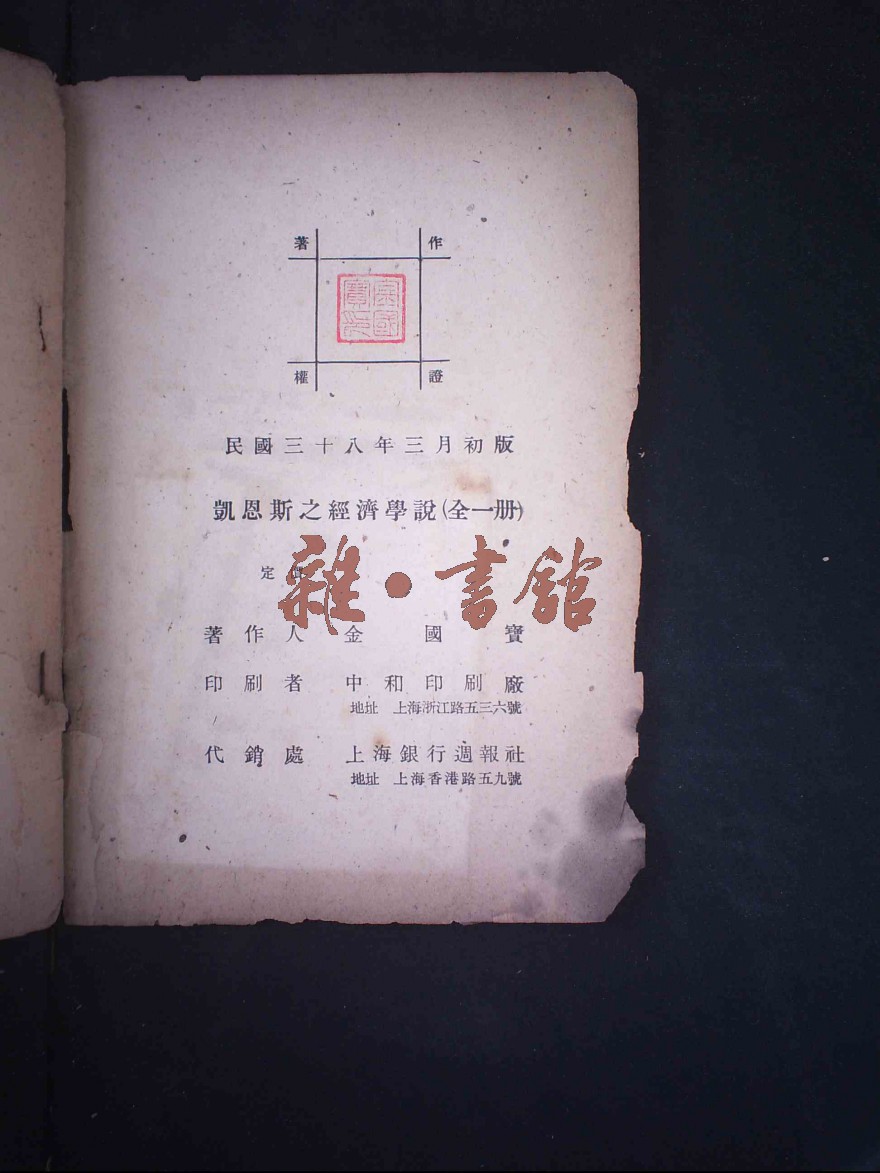 著 作
權 證
民國三十八年三月初版
凱恩斯之經濟學說(全一册)
定
雜·書館
著作人 金國寶
印刷者 中和印刷廠
地址 上海浙江路五三六號
代銷處 上海銀行週報社
地址 上海香港路五九號